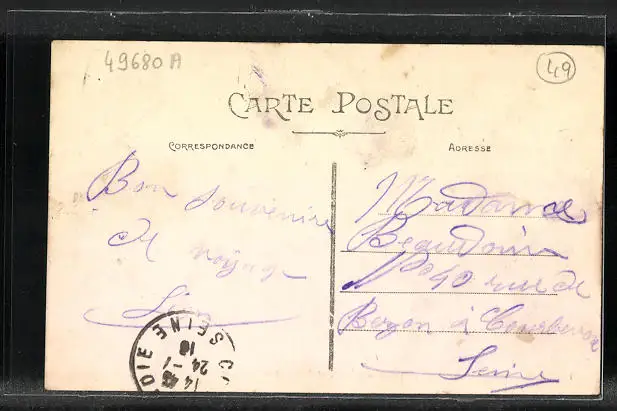 49680A
49
CARTE POSTALE
CORRESPONDANCE
ADRESSE
Bon souvenir
de voyage
Madame
Beaudoin
N° 40 rue de
Bezon à Courbevoie
Seine
SEINE
14 45
24-1
10